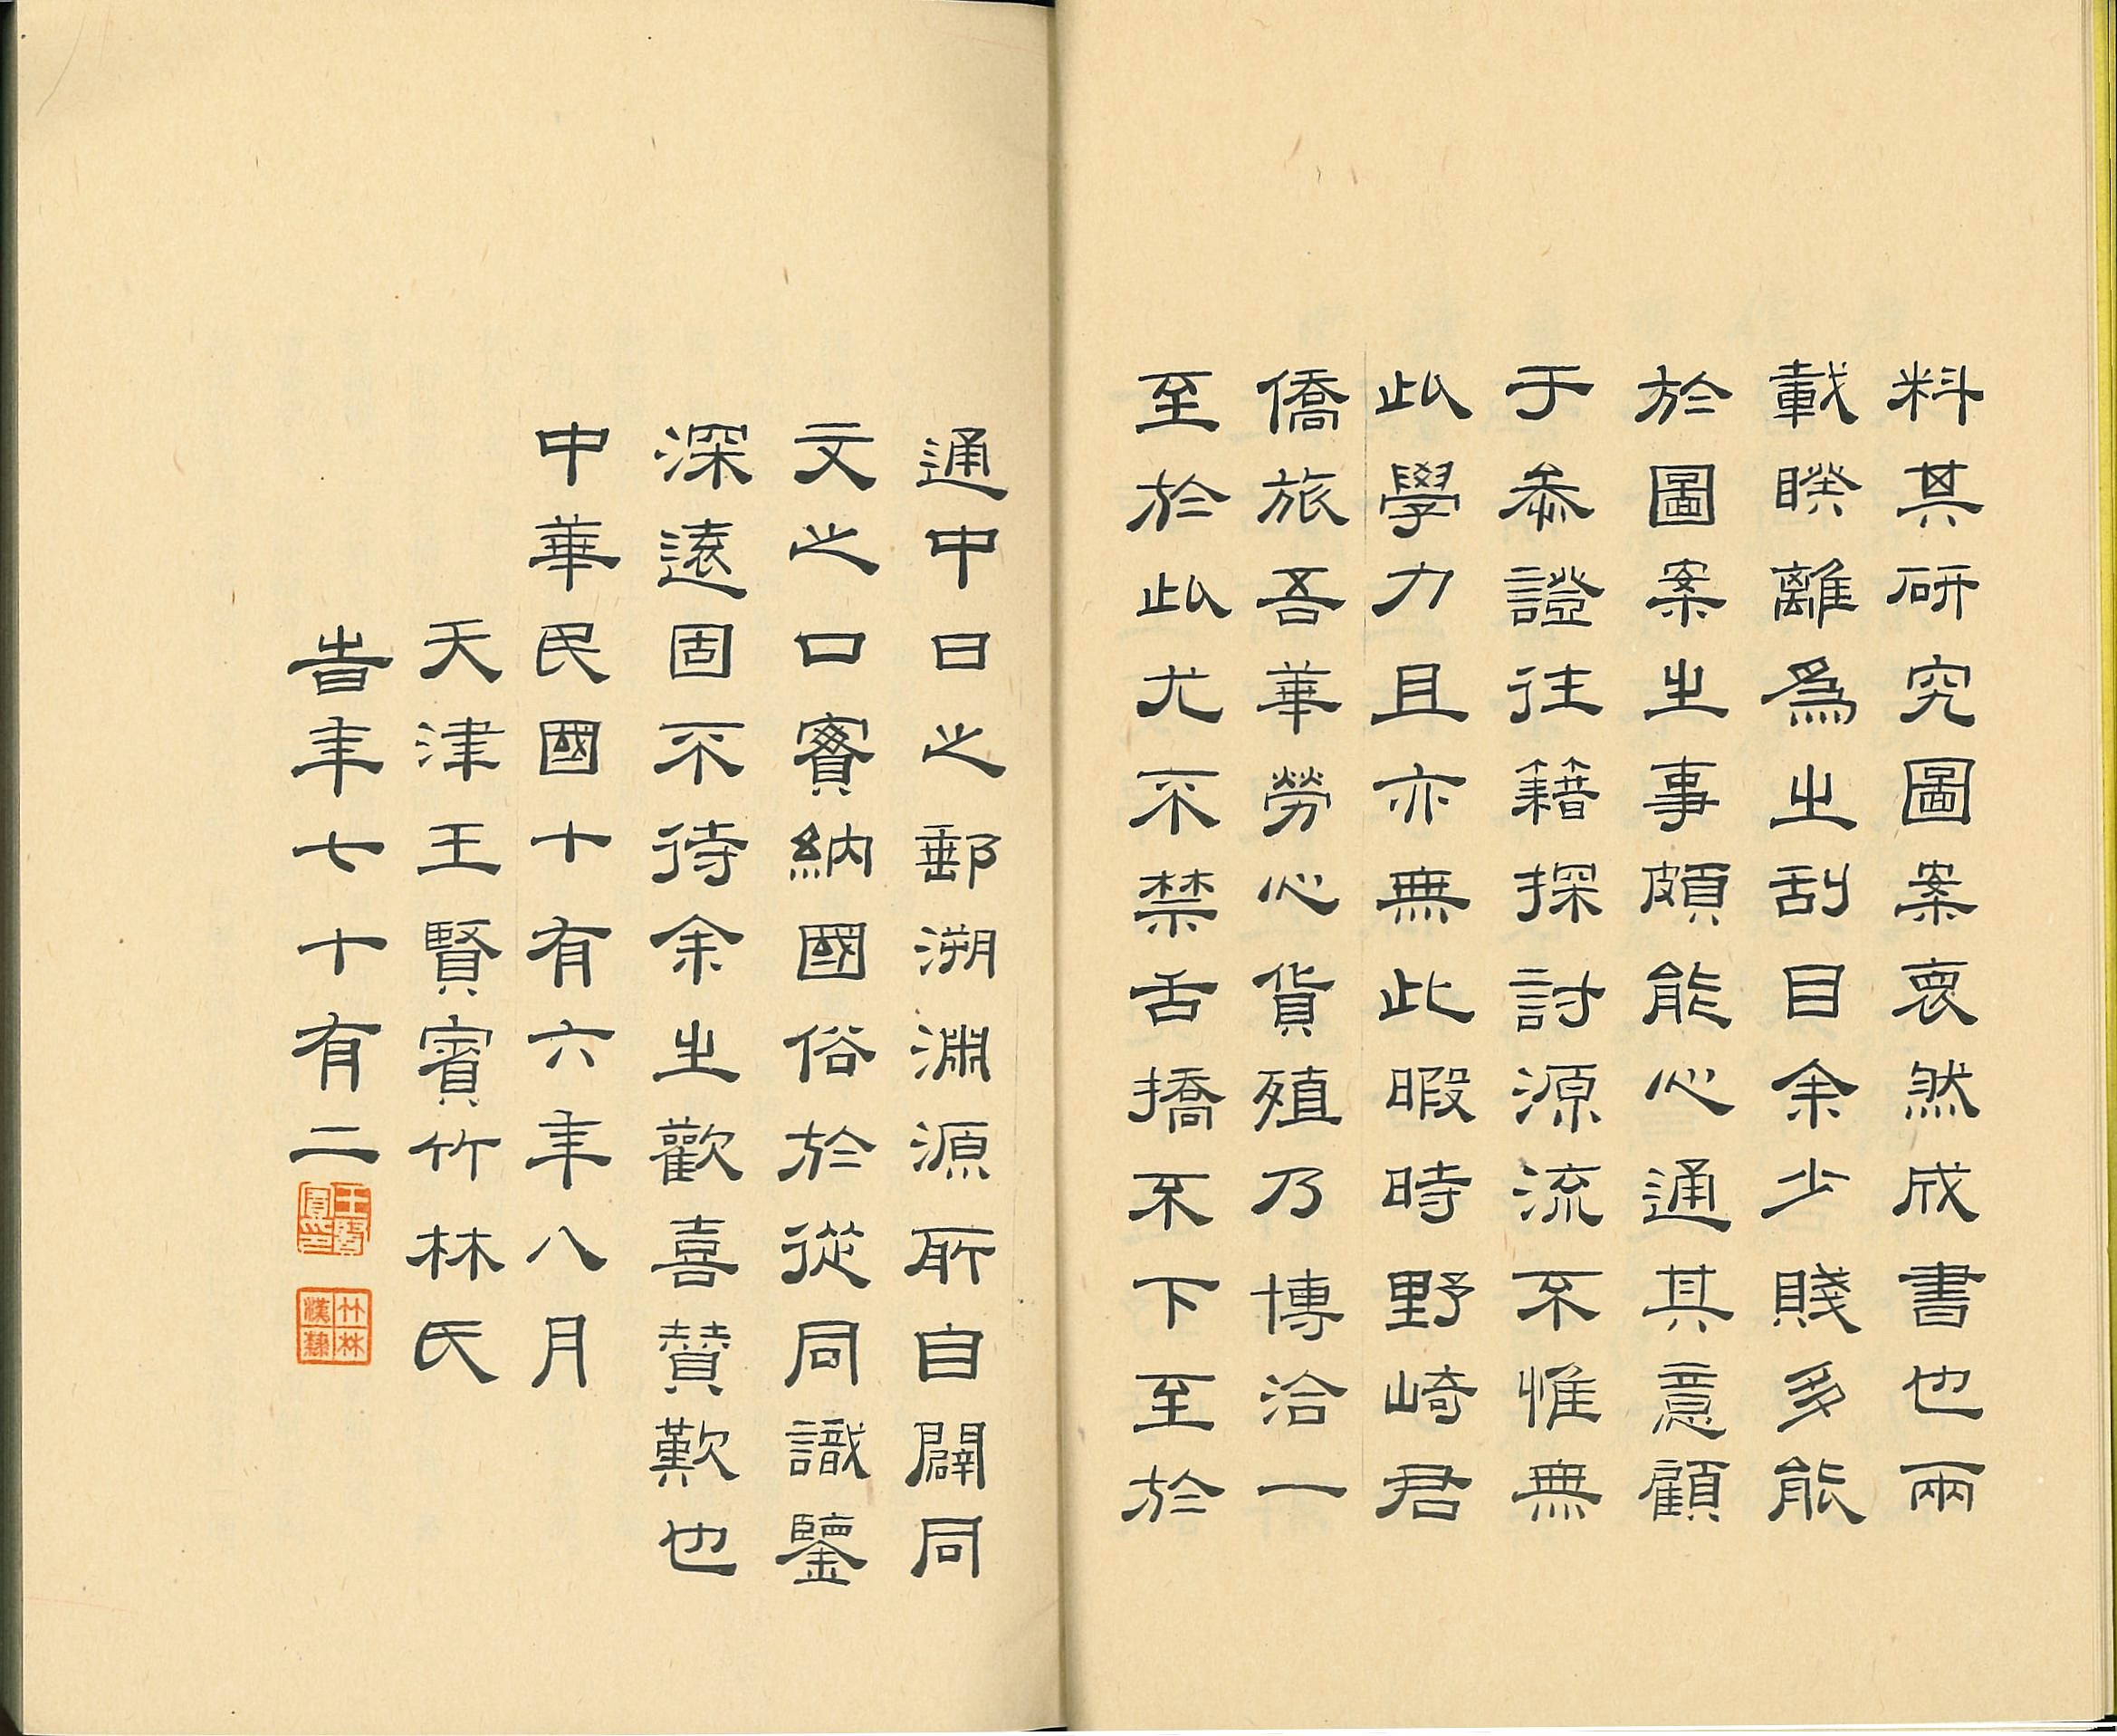 料其研究圖案裒然成書也兩
載睽離爲之刮目余少賤多能
於圖案之事頗能心通其意顧
于參證往籍探討源流不惟無
此學力且亦無此暇時野崎君
僑旅吾華勞心貨殖乃博洽一
至於此尤不禁舌撟不下至於
通中日之郵溯淵源所自闢同
文之口賨納國俗於從同識鑒
深遠固不待余之歡喜贊歎也
中華民國十有六年八月
天津王賢賓竹林氏
時年七十有二
王賢賓印
竹林漢隸